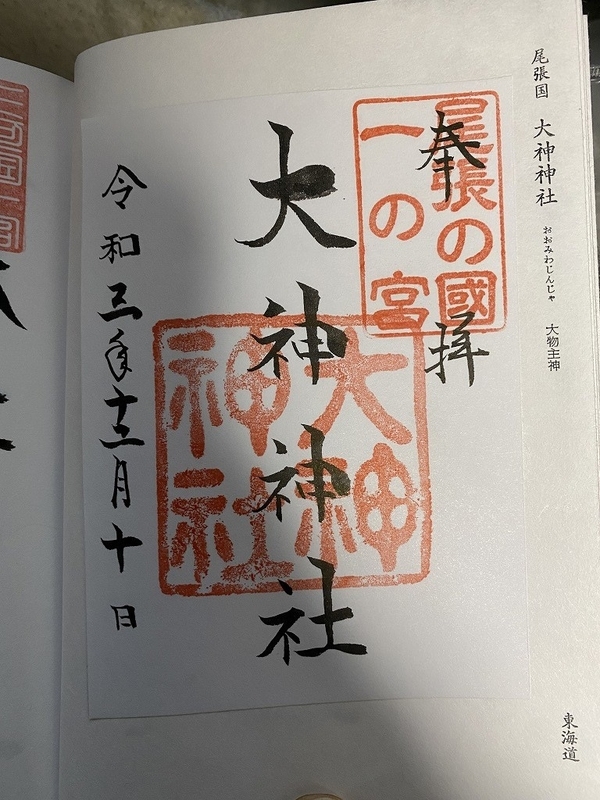 尾張国 大神神社 おおみわじんじゃ 大物主神
東海道
奉拝
尾張の國
一の宮
大神神社
大神
神社
令和三年十二月十日
三河国一宮